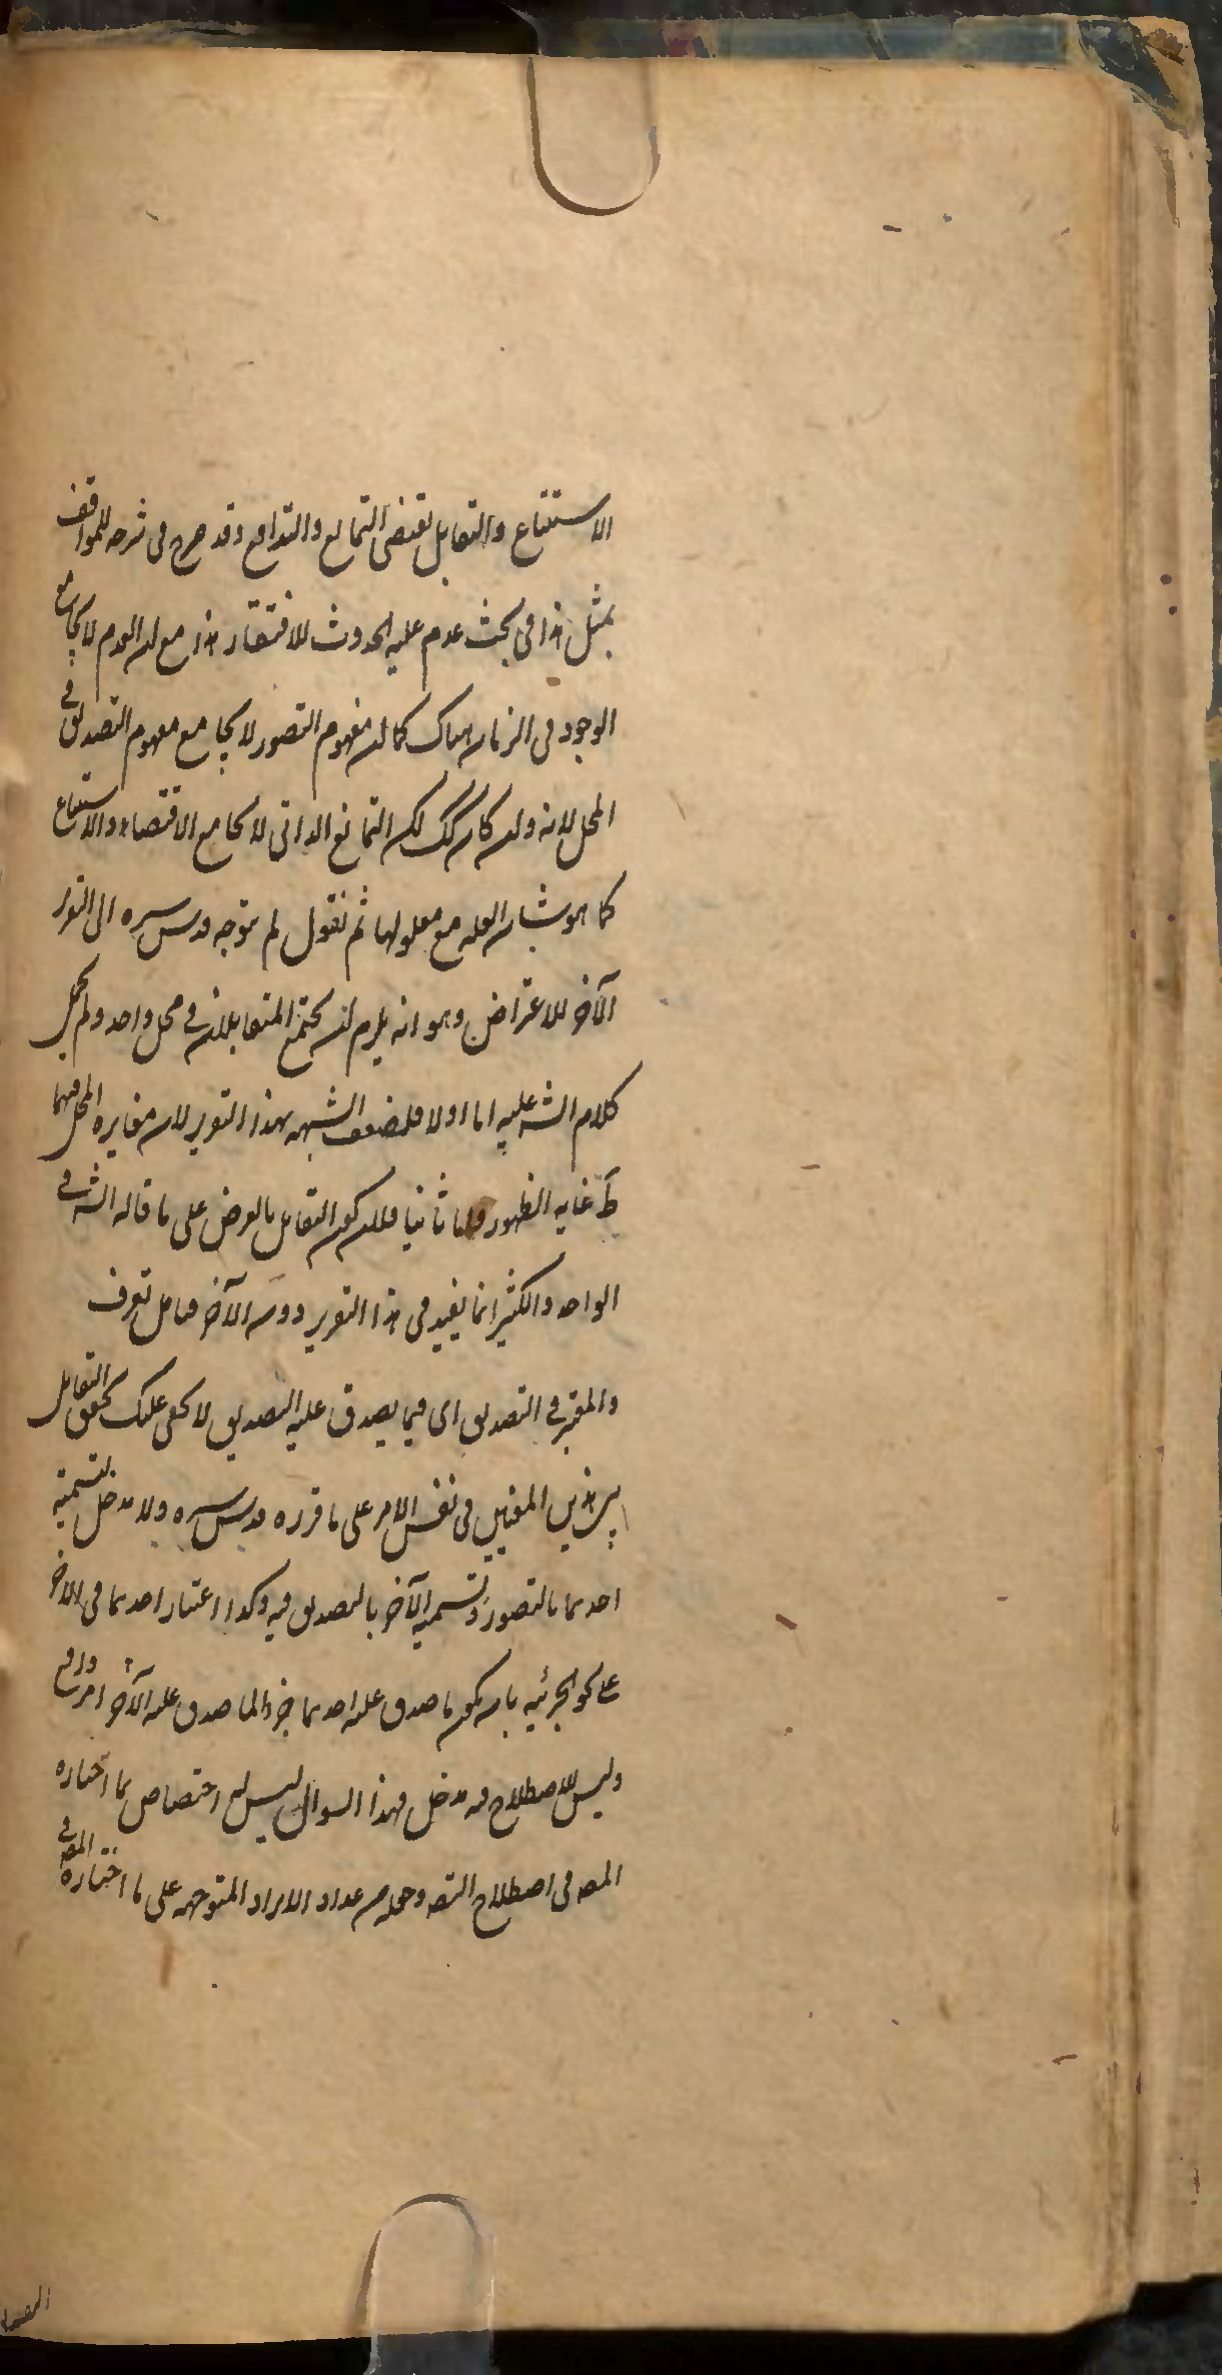 الاستتباع والتقابل يقتضى التمانع والتدافع وقد صرح فى شرحه للمواقف
بمثل هذا فى بحث عدم عليه الحدوث للافتقار هذا مع ان العدم لا يجامع
الوجود فى الزمان هناك كما ان مفهوم التصور لا يجامع مفهوم التصديق فى
المحل لانه وان كان كك لكن التمانع الذاتى لا يجامع الاقتضاء والاستتباع
كما هو شان العله مع معلولها ثم نقول لم يتوجه قدس سره الى التقرير
الآخر للاعتراض وهو انه يلزم ان يجتمع المتقابلان فى محل واحد ولم يحمل
كلام الشه عليه اما اولا فلضعف الشبهه بهذا التقرير لان مغايره المحل فيهما
ظ غايه الظهور واما ثانيا فلان كون التقابل بالعرض على ما قاله الشه فى
الواحد والكثير انما يفيد فى هذا التقرير دون الآخر فتامل تعرف
والمعتبر فى التصديق اى فيما يصدق عليه التصديق لا يخفى عليك تحقق التقابل
بين هذين المعنيين فى نفس الامر على ما قرره قدس سره ولا مدخل لتسميته
احدهما بالتصور وتسميه الآخر بالتصديق فيه وكذا اعتبار احدهما فى الاخر
على نحو الجزئيه بان يكون ما صدق عليه احدهما جزءا لما صدق عليه الآخر امر واقع
وليس للاصطلاح فيه مدخل فهذا السوال ليس له اختصاص بما اختاره
المصه فى اصطلاح التصه وجعله من عداد الايراد المتوجهه على ما اختاره المصه فى